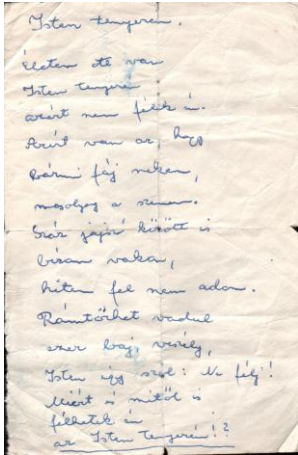 Isten tenyerén.
Életem ott van
Isten tenyerén
azért nem félek én.
Azért van az, hogy
Bármi fáj nekem,
mosolyog a szemem.
Száz jajszó között is
bízom vakon,
hitem fel nem adom.
Rámtörhet vadul
ezer baj, veszély,
Isten így szól: Ne félj!
Miért is mitől is
félhetek én
az Isten tenyerén!?